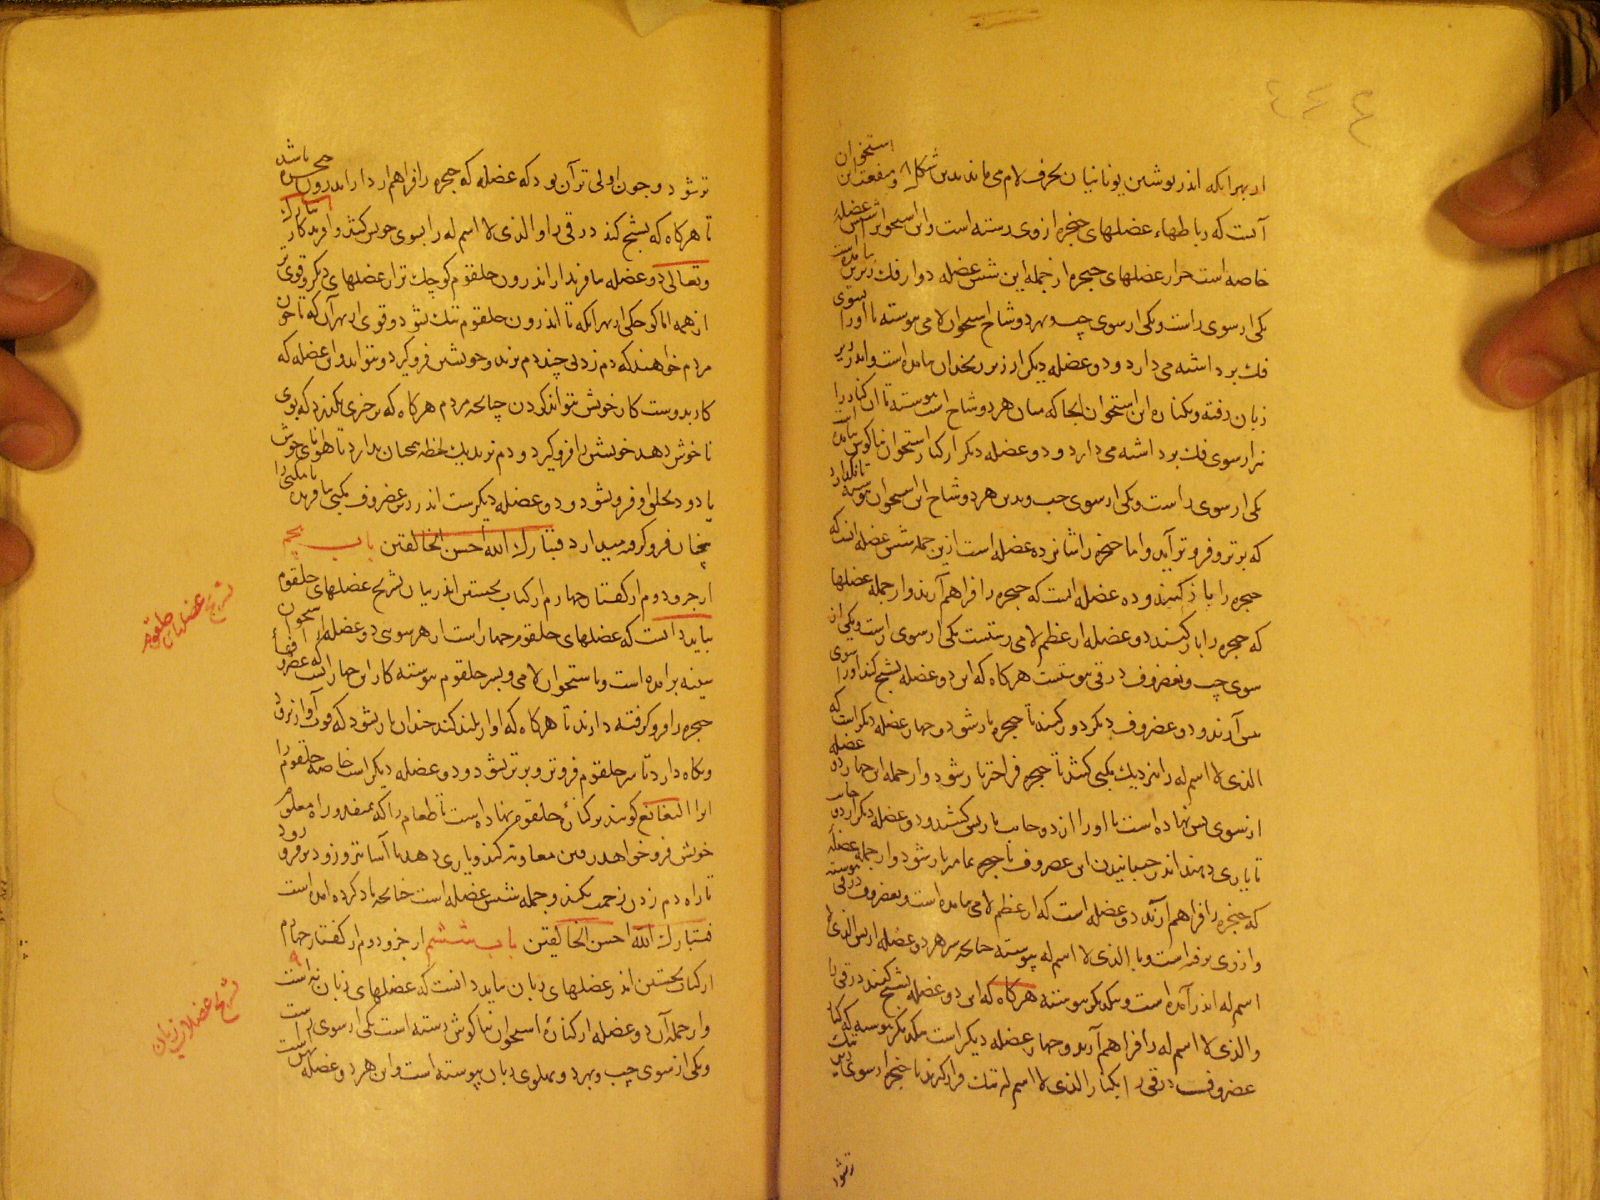 از بهر آنکه اندر نوشتن یونانیان بحرف لام می ماند بدین شکل ۸ و منفعت این استخوان
آنست که رباطهاء عضلهای حنجره از وی رسته است و این استخوان را شش عضله
خاصه است جز از عضلهای حنجره از جمله این شش عضله دو از فک زیرین
یکی از سوی راست و یکی از سوی چپ و بهر دو شاخ استخوان لامی پیوسته تا او را بسوی
فک برداشته می دارد و دو عضله دیگر از زیر زنخدان بیامده است و اندر زیر
زبان رفته و بکناره این استخوان آنجا که میان هر دو شاخ است پیوسته تا این کناره را
نیز از سوی فک برداشته می دارد و دو عضله دیگر از کنار استخوان بناکوش بیامده است
یکی از سوی راست و یکی از سوی چپ و بدین هر دو شاخ این استخوان پیوسته تا نگذارد
که برتر و فروتر آید و اما حنجره را شانزده عضله است از این جمله شش عضله آنند که
حنجره را باز کنند و ده عضله است که حنجره را فراهم آرند و از جمله عضلها
که حنجره را باز کنند دو عضله از عظم لامی رستست یکی از سوی راست و یکی از
سوی چپ و بغضروف درقی پیوستست هرگاه که این دو عضله تشنج کند او را سوی
پیش آرند و دو غضروف دیگر دور کنند تا حنجره باز شود و چهار عضله دیگر است که
الذی لا اسم له را نزدیک مکبی کشند تا حنجره فراختر باز شود و از جمله این چهار دو عضله
از سوی پس نهاده است تا او را از دو جانب باز پس کشند و دو عضله دیگر از دو جانب
تا یاری دهند اندر جنبانیدن این غضروف تا حنجره تمامتر باز شود و از جمله عضله
که حنجره را فراهم آرند دو عضله است که از عظم لامی بیامده است و بغضروف درقی پیوسته
و از وی برفته است و با الذی لا اسم له پیوسته چنانچه سر هر دو عضله از پس الذی لا
اسم له اندر آمده است و بیکدیگر پیوسته هرگاه که این دو عضله تشنج کنند درقی را
و الذی لا اسم له را فراهم آرند و چهار عضله دیگر است بیکدیگر پیوسته که کنار
غضروف درقی را بکنار الذی لا اسم له تنگ فراز گیرند تا حنجره از سوی زیر تنگ
تر شود
تر شود و چون اولی تر آن بود که عضله که حنجره را فراهم آرد از اندرون حنجره باشد
تا هرگاه که تشنج کند درقی را و الذی لا اسم له را بسوی خویش کشد و آفریدگار تبارک
و تعالی دو عضله بیافرید از اندرون حلقوم کوچک تر از عضلهای دیگر و قوی تر
از همه اما کوچکی از بهر آنکه تا اندرون حلقوم تنک نشود و قوی از بهر آن که تا چون
مردم خواهند که دم زدنی چند دم نزند و خویشتن فرو گیرد و بتواند و این عضله که
کار بدوست کار خویش بتواند کردن چنانچه مردم هرگاه که بر چیزی بگذرد که بوی
ناخوش دهد خویشتن را فرو گیرد و دم نزند یک لحظه همچنان بدارد تا هوای خوش
یابد و دو عضله دیگرست اندر زیر غضروف مکبی بیافریده تا مکبی را
همچنان فرو گرفته میدارد فتبارک الله احسن الخالقین باب پنجم
از جزو دوم از گفتار چهارم از کتاب نخستین اندر بیان تشریح عضلهای حلقوم
بباید دانست که عضلهای حلقوم چهار است از هر سوی دو عضله از استخوان
سینه برآمده است و باستخوان لامی و بسر حلقوم پیوسته کار این چهار آنست که غضروف
حنجره را فرو گرفته دارند تا هرگاه که آواز بلند کند چندان باز نشود که قوت آواز برود
و نگاه دارد تا سر حلقوم فروتر و برتر نشود و دو عضله دیگر است خاصه حلقوم را
آنرا النغانغ گویند بر کناره حلقوم نهاده است تا طعام را که بمنفذ و راه معلق
خویش فرو خواهد رفتن معاونت کند و یاری دهد تا آسانتر و زودتر فرو رود
تا راه دم زدن زحمت نکند و جمله شش عضله است چنانچه یاد کرده آمده است
فتبارک الله احسن الخالقین باب ششم از جزو دوم از گفتار چهارم
از کتاب نخستین اندر عضلهای زبان بباید دانست که عضلهای زبان نه ۹ است
و از جمله آن دو عضله از کناره استخوان بناکوش رسته است یکی از سوی راست
و یکی از سوی چپ و بهر دو پهلوی زبان پیوسته است و این هر دو عضله پهن است
تشریح عضلهای حلقوم
تشریح عضلهای زبان